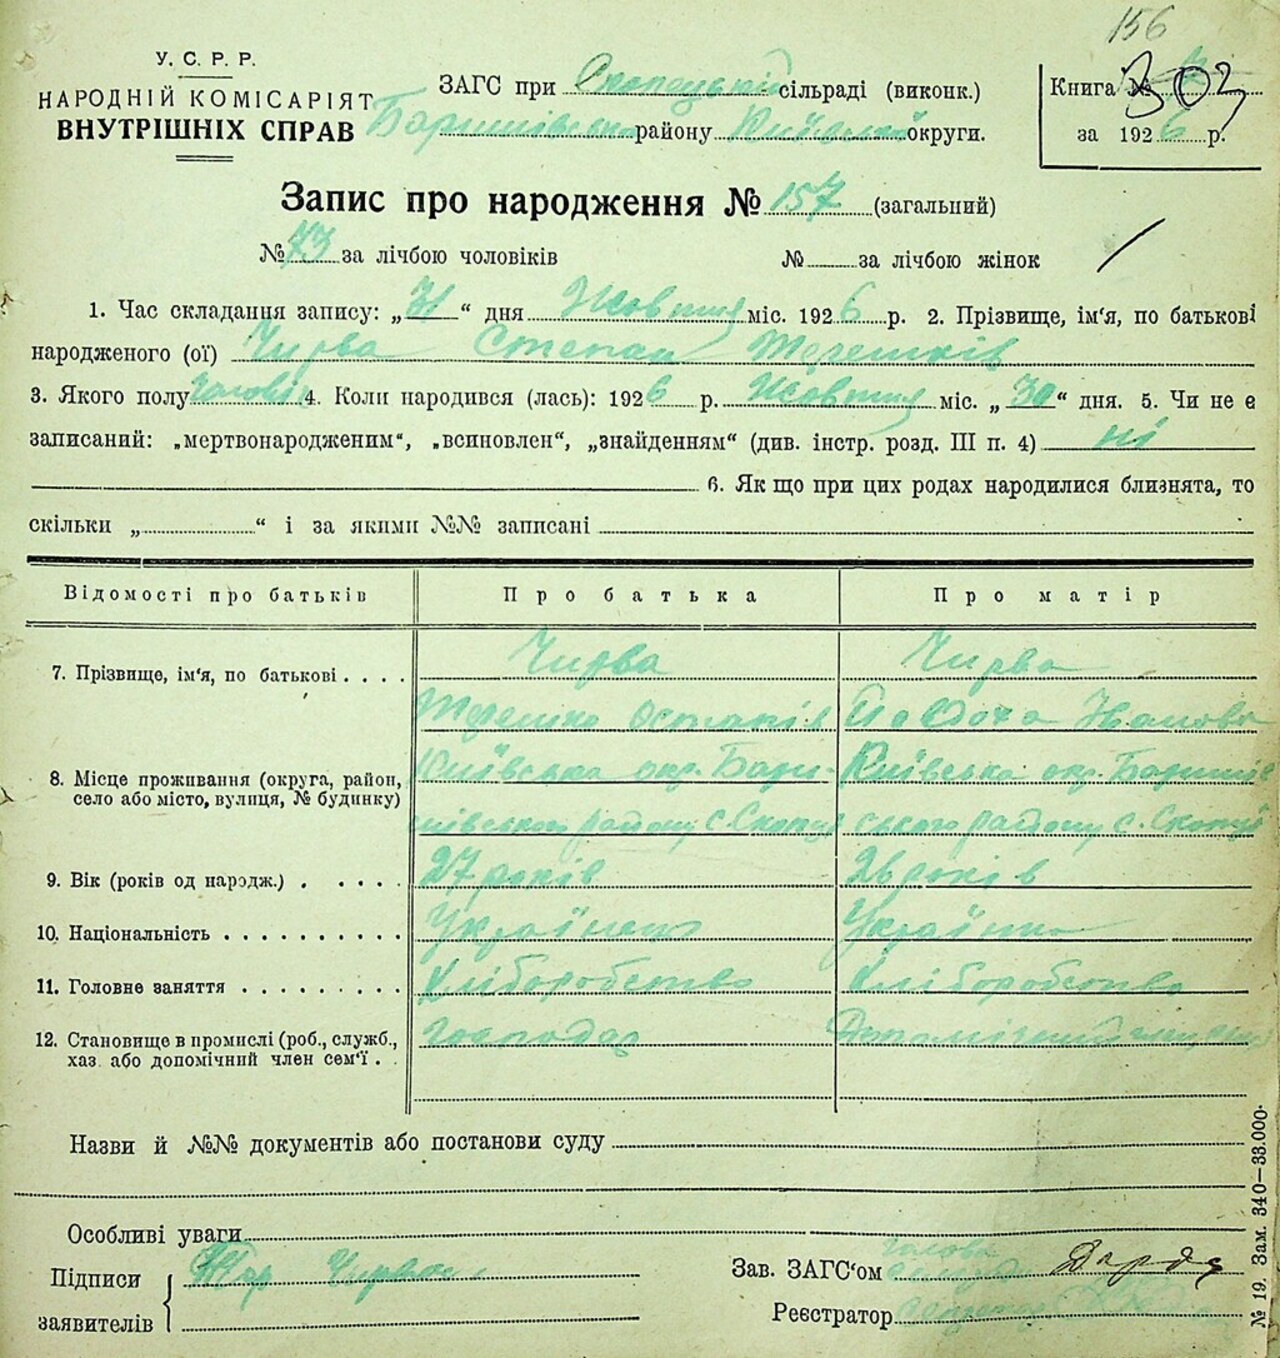 156
У. С. Р. Р.
НАРОДНІЙ КОМІСАРІЯТ
ВНУТРІШНІХ СПРАВ
ЗАГС при Скопецькій сільраді (виконк.)
Баришівськ району Київської округи.
Книга № 303
за 1926 р.
Запис про народження № 157 (загальний)
№ 73 за лічбою чоловіків № за лічбою жінок
1. Час складання запису: „31“ дня Жовтня міс. 1926 р. 2. Прізвище, ім'я, по батькові
народженого (ої) Чирва Степан Терешків
3. Якого полу чоловік 4. Коли народився (лась): 1926 р. Жовтня міс. „30“ дня. 5. Чи не є
записаний: „мертвонародженим“, „всиновлен“, „знайденням“ (див. інстр. розд. III п. 4) ні
6. Як що при цих родах народилися близнята, то
скільки „ “ і за якими №№ записані
Відомості про батьків Про батька Про матір
7. Прізвище, ім'я, по батькові . . . . Чирва Чирва
Терешко Остапів Явдоха Іванова
8. Місце проживання (округа, район, Київська окр. Бари- Київська окр. Баришів
село або місто, вулиця, № будинку)
шівського району с. Скопці ського району с. Скопці
9. Вік (років од народж.) . . . . . 27 років 26 років
10. Національність . . . . . . . . . . Українець Українка
11. Головне заняття . . . . . . . . . Хліборобство Хліборобство
12. Становище в промислі (роб., служб., господар Допомічний член
хаз. або допомічний член сем'ї . .
Назви й №№ документів або постанови суду
Особливі уваги
Підписи Тер Чирва
заявителів
Зав. ЗАГС'ом голова
Реєстратор секретар
№ 19. Зам. 340—33.000.